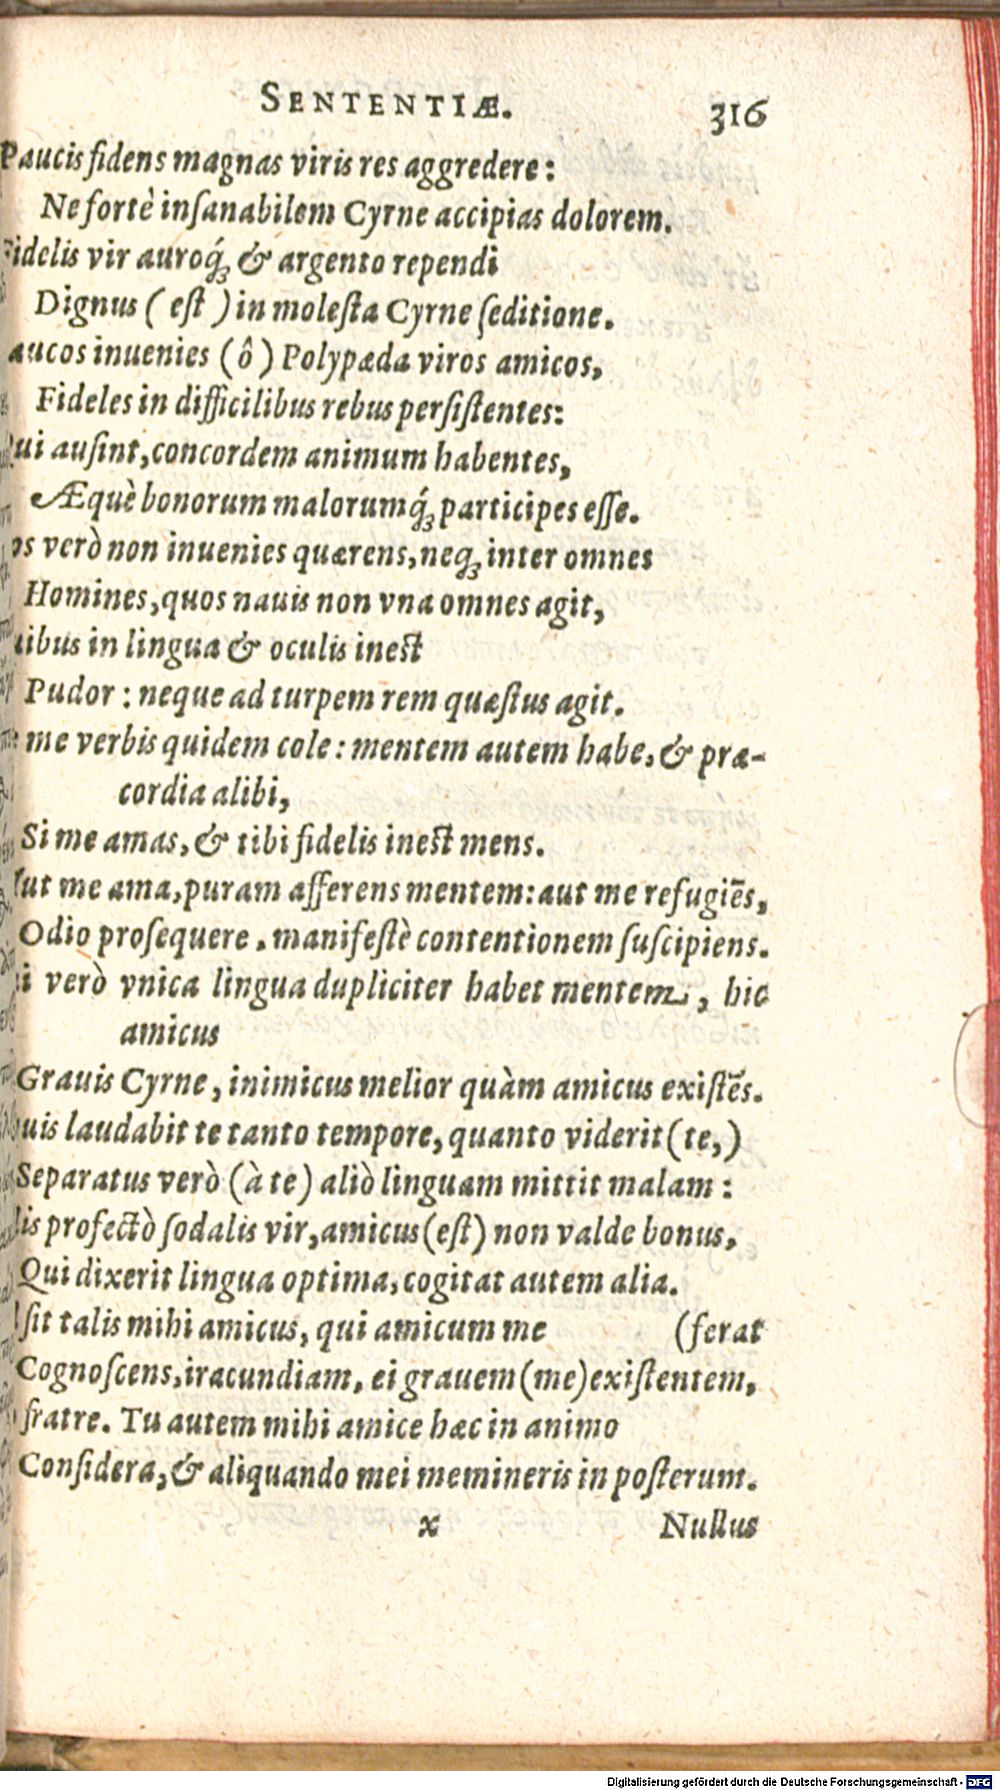 SENTENTIÆ. 316
Paucis fidens magnas viris res aggredere:
Ne fortè inſanabilem Cyrne accipias dolorem.
Fidelis vir auroq́ꝫ & argento rependi
Dignus (eſt) in moleſta Cyrne ſeditione.
aucos inuenies (ô) Polypæda viros amicos,
Fideles in difficilibus rebus perſiſtentes:
Qui auſint, concordem animum habentes,
Æquè bonorum malorumq́ꝫ participes eſſe.
os verò non inuenies quærens, neqꝫ inter omnes
Homines, quos nauis non vna omnes agit,
uibus in lingua & oculis ineſt
Pudor: neque ad turpem rem quæſtus agit.
me verbis quidem cole: mentem autem habe, & præ-
cordia alibi,
Si me amas, & tibi fidelis ineſt mens.
Aut me ama, puram afferens mentem: aut me refugiēs,
Odio proſequere, manifeſtè contentionem ſuſcipiens.
i verò vnica lingua dupliciter habet mentem, hic
amicus
Grauis Cyrne, inimicus melior quàm amicus exiſtēs.
uis laudabit te tanto tempore, quanto viderit (te,)
Separatus verò (à te) aliò linguam mittit malam:
lis profectò ſodalis vir, amicus (eſt) non valde bonus,
Qui dixerit lingua optima, cogitat autem alia.
ſit talis mihi amicus, qui amicum me (ferat
Cognoſcens, iracundiam, ei grauem (me) exiſtentem,
fratre. Tu autem mihi amice hæc in animo
Conſidera, & aliquando mei memineris in poſterum.
x Nullus
Digitalisierung gefördert durch die Deutsche Forschungsgemeinschaft - DFG